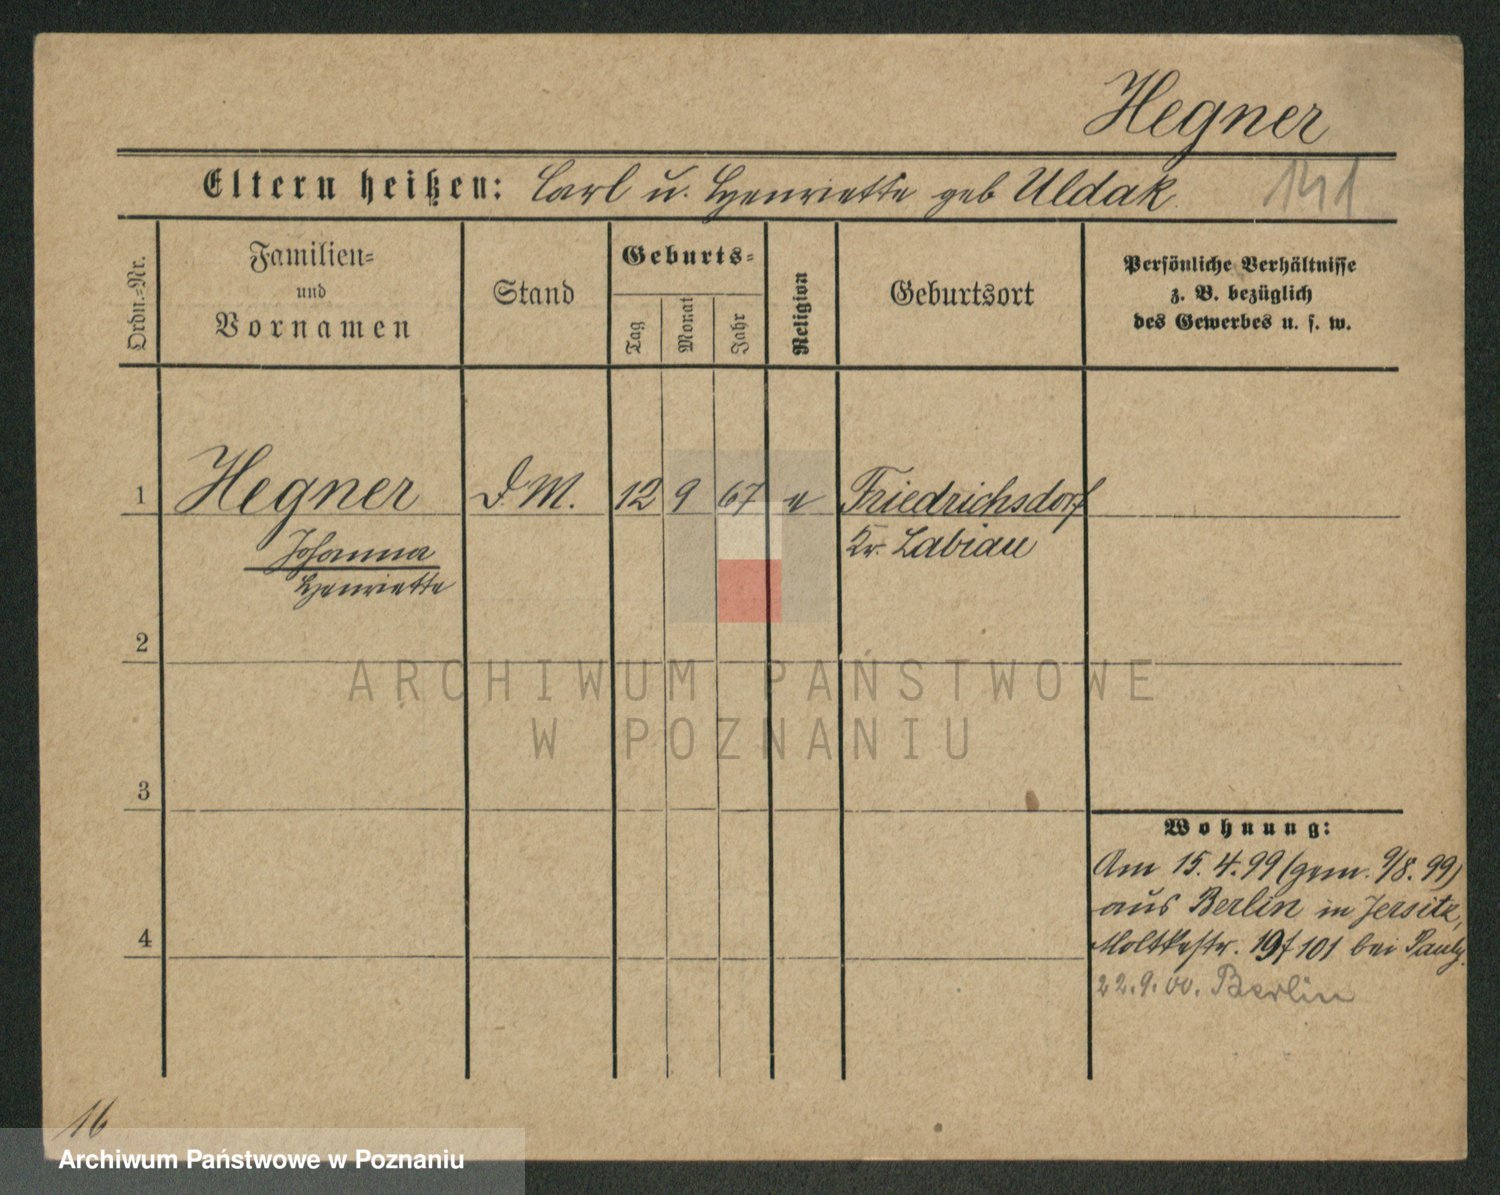 Hegner
Eltern heißen: Carl u. Henriette geb Uldak.
Ordn.-Nr.
Familien-
und
Vornamen
Stand
Geburts-
Tag
Monat
Jahr
Religion
Geburtsort
Persönliche Verhältnisse
z. B. bezüglich
des Gewerbes u. s. w.
1 Hegner D.M. 12 9 67 e Friedrichsdorf
Johanna Kr. Labiau
Henriette
2
ARCHIWUM PAŃSTWOWE
W POZNANIU
3
Wohnung:
Am 15.4.99 (gem. 9/8.99)
aus Berlin in Jersitz,
4
Moltkestr. 19 f 101 bei
22.9.00. Berlin
16
Archiwum Państwowe w Poznaniu